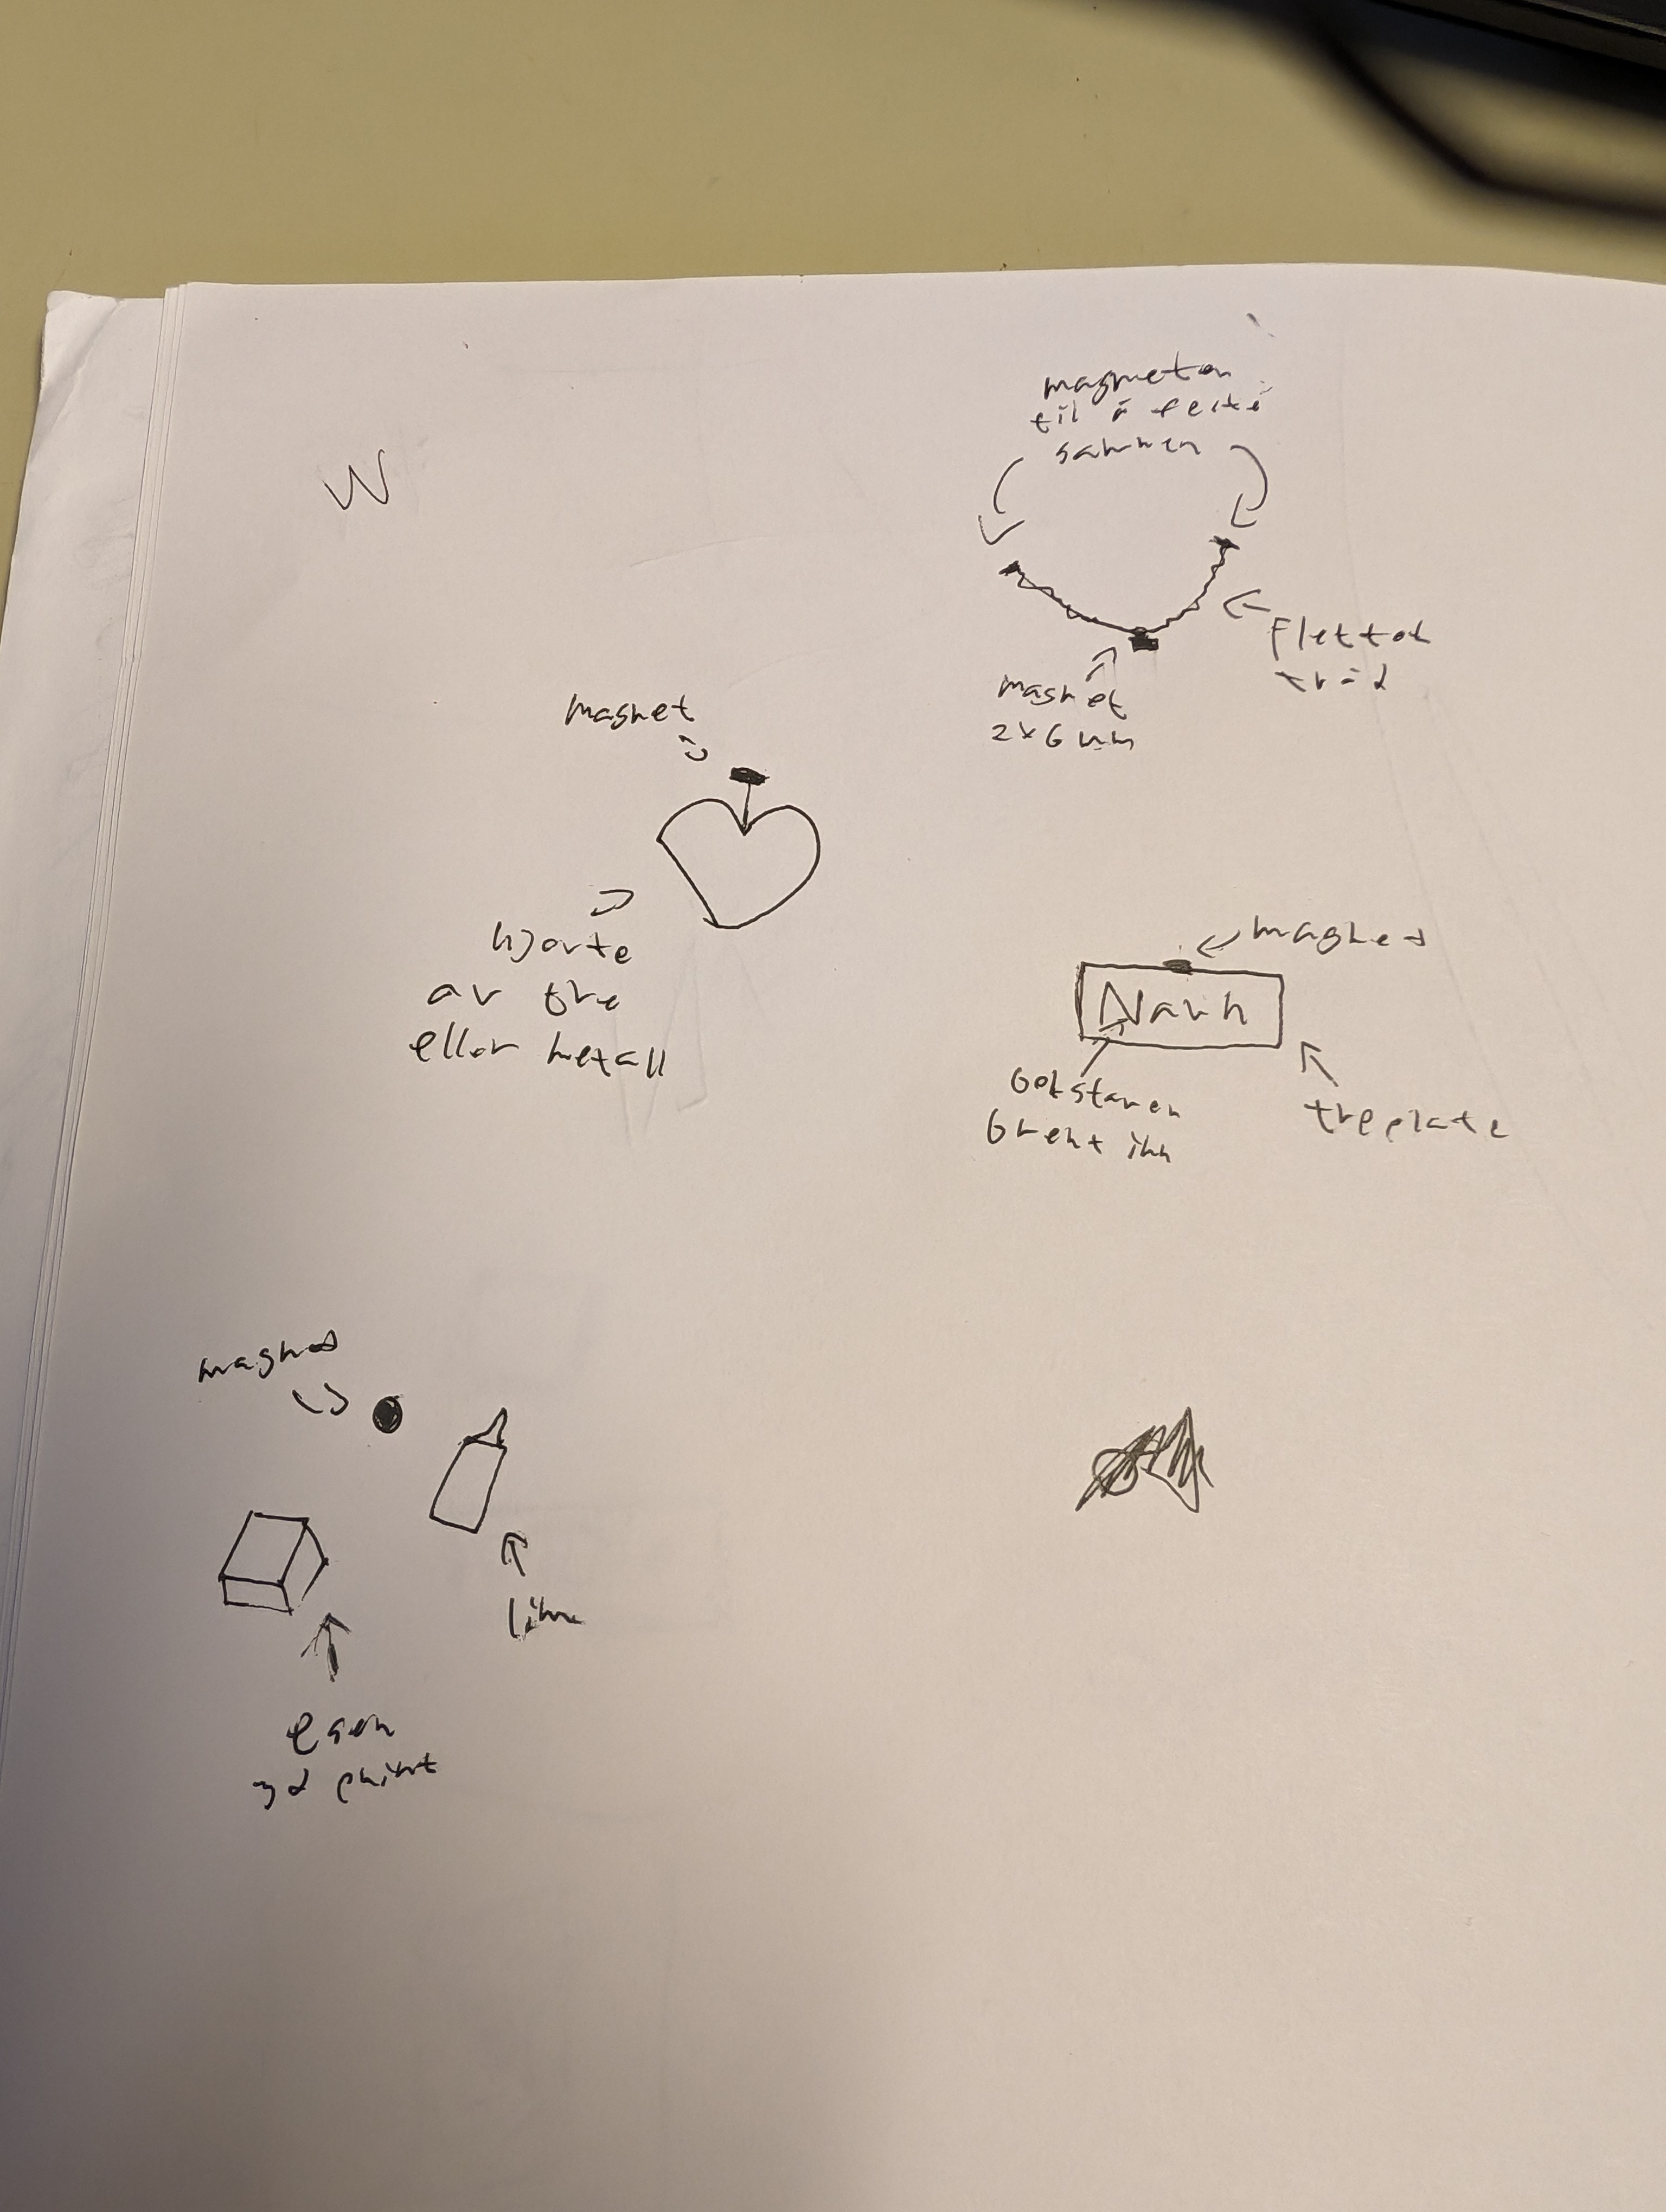 magneter
til å feste
sammen
W
flettet
tråd
magnet
2x6 mm
magnet
hjerte
av tre
eller metall
magnet
Navn
bokstaver
brent inn
treplate
magnet
lim
egen
3d print